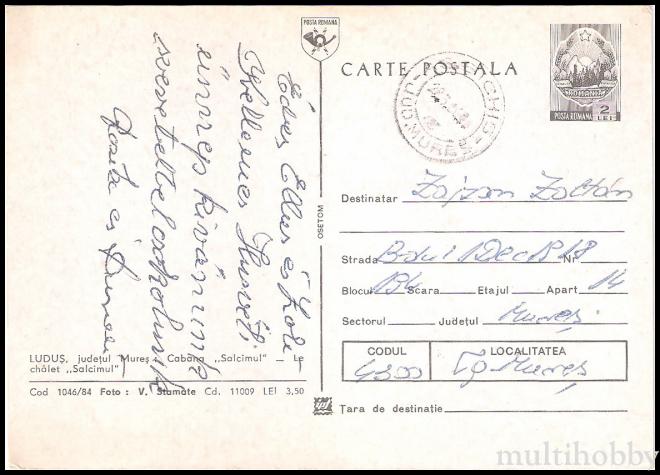 Édes Ellus és Zoli
Kellemes Húsvéti
ünnepi kívánunk
szeretettel csókolunk
és
POSTA ROMANA
CARTE POSTALA
ROMANIA
POSTA ROMANA 2 LEI
CHIS
JUD. MUREȘ
OSETOM
Destinatar Zajzon Zoltán
Strada B-dul 1 Dec 1918 Nr.
Blocul 194 Scara Etajul Apart 14
Sectorul Județul Mureș
CODUL LOCALITATEA
4300 Tg Mureș
Țara de destinație
LUDUȘ, județul Mureș - Cabana „Salcimul" — Le
châlet „Salcimul"
Cod 1046/84 Foto : V. Stamate Cd. 11009 LEI 3,50
multihobby